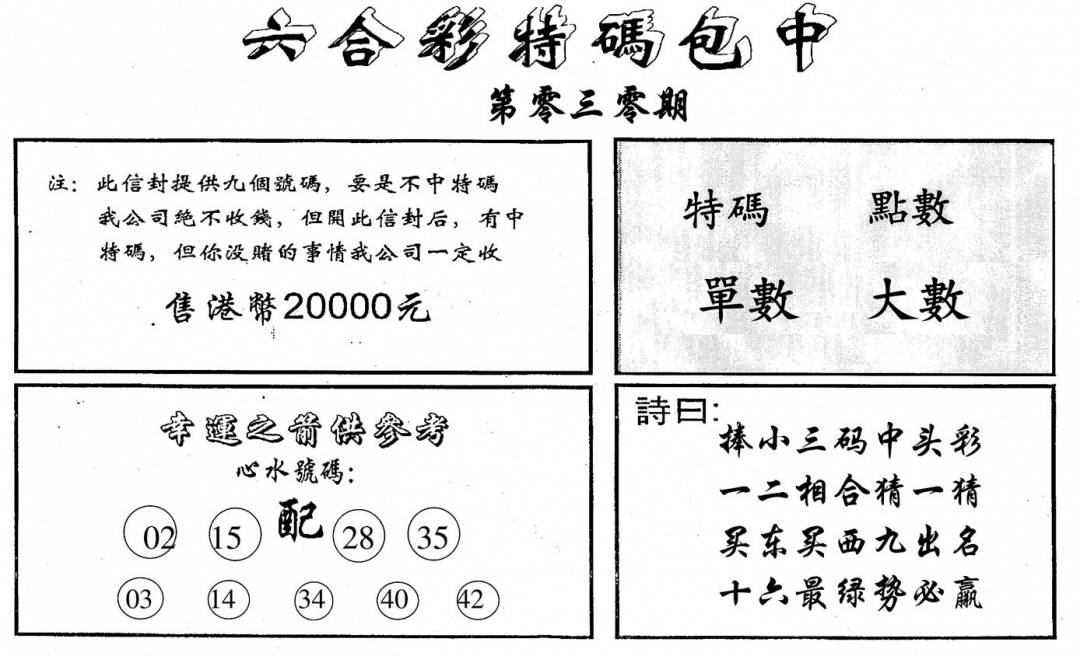 六合彩特碼包中
第零三零期
注：此信封提供九個號碼，要是不中特碼
我公司絕不收錢，但開此信封后，有中
特碼，但你没賭的事情我公司一定收
售港幣20000元
特碼 點數
單數 大數
幸運之箭供參考
心水號碼：
02 15 配 28 35
03 14 34 40 42
詩曰：
捧小三码中头彩
一二相合猜一猜
买东买西九出名
十六最绿势必赢